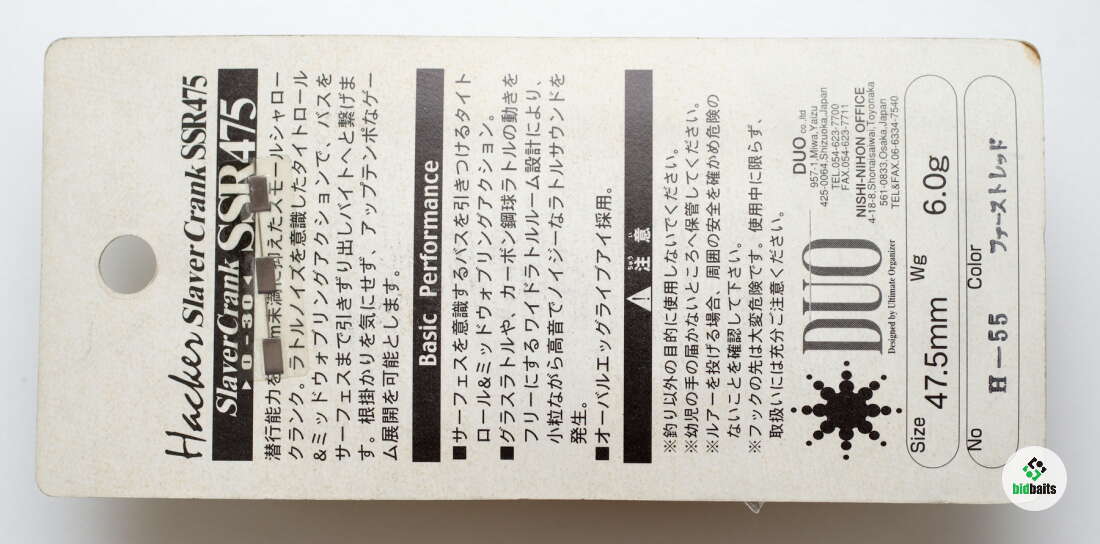 Hacker Slaver Crank SSR475
Slaver Crank SSR475
▶0-30◀
m未満に抑えたスモールシャロー
潜行能力を
クランク。ラトルノイズを意識したタイトロール
&ミッドウォブリングアクションで、バスを
サーフェスまで引きずり出しバイトへと繋げま
す。根掛かりを気にせず、アップテンポなゲー
ム展開を可能とします。
Basic Performance
■サーフェスを意識するバスを引きつけるタイト
ロール&ミッドウォブリングアクション。
■グラスラトルや、カーボン鋼球ラトルの動きを
フリーにするワイドラトルルーム設計により、
小粒ながら高音でノイジーなラトルサウンドを
発生。
■オーバルエッグライブアイ採用。
注意
ちゅう い
※釣り以外の目的に使用しないでください。
※幼児の手の届かないところへ保管してください。
※ルアーを投げる場合、周囲の安全を確かめ危険の
ないことを確認して下さい。
※フックの先は大変危険です。使用中に限らず、
取扱いには充分ご注意ください。
DUO
Designed by Ultimate Organizer
DUO co.,ltd
957-1,Miwa,Yaizu
425-0064.Shizuoka,Japan
TEL.054-623-7700
FAX.054-623-7711
NISHI-NIHON OFFICE
4-18-8.Shonaisaiwai,Toyonaka
561-0833.Osaka,Japan
TEL&FAX.06-6334-7540
Size 47.5mm Wg 6.0g
No H-55 Color ファーストレッド
bidbaits